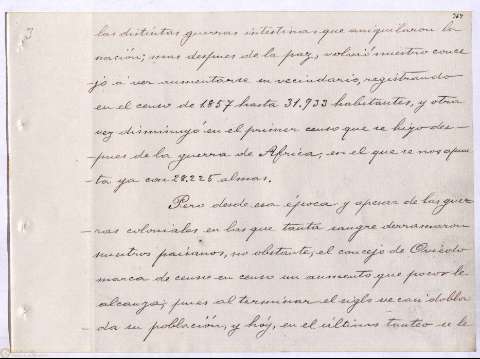 3
las distintas guerras intestinas que aniquilaron la
nación; mas despues de la paz, volvió nuestro conce
jo á ver aumentarse su vecindario, registrando
en el censo de 1857 hasta 31.933 habitantes, y otra
vez disminuyó en el primer censo que se hizo des-
-pues de la guerra de Africa, en el que se nos apun
ta ya con 28.225 almas.
Pero desde esa época y apesar de las guer
-ras coloniales en las que tanta sangre derramaron
nuestros paisanos, no obstante, el concejo de Oviedo
marca de censo en censo un aumento que pocos le
alcanza; pues al terminar el siglo ve casi dobla
-da su población, y hoy, en el último tanteo se le